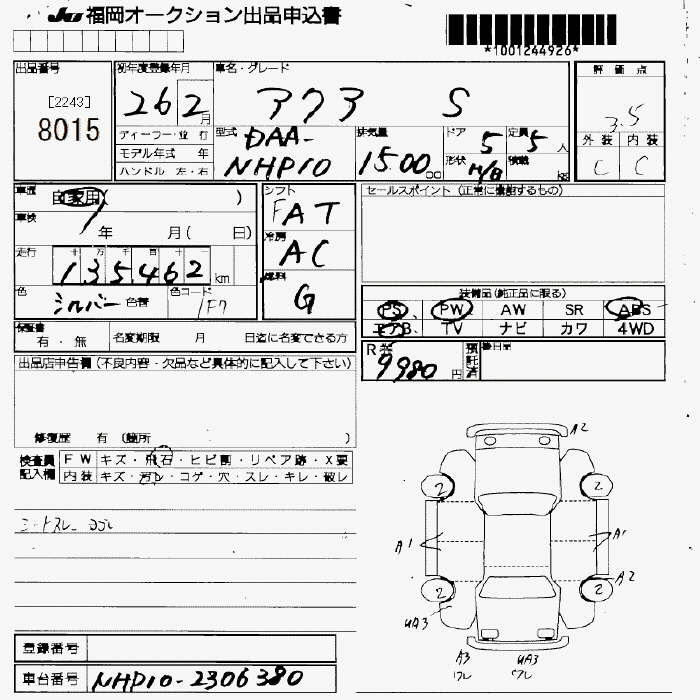 JU 福岡オークション出品申込書
*1001244926*
出品番号 初年度登録年月 車名・グレード 評価点
[2243]
8015
26 2月 アクア S
3.5
ディーラー・並行 型式 排気量 ドア 定員 外装 内装
モデル年式 年 DAA- 5 5人 C C
ハンドル 左・右 NHP10 1500cc 形状 H/B 積載 kg
車歴 自家用 ) シフト セールスポイント (正常に機能するもの)
FAT
車検 年 月( 日) 冷房
AC
走行 十 万 千 百 十
135,462 km 燃料
G
色 シルバー 色替 色コード 1F7
装備品(純正品に限る)
PS PW AW SR ABS
エアB TV ナビ カワ 4WD
保証書 有・無 名変期限 月 日迄に名変できる方
R券 9980円 預託済
出品店申告欄(不良内容・欠品など具体的に記入して下さい)
修復歴 有 (箇所 )
検査員記入欄 FW キズ・飛石・ヒビ割・リペア跡・X要
内装 キズ・汚レ・コゲ・穴・スレ・キレ・破レ
シートスレ ヨゴレ
A2
2 2
A1 A1
2 2 A2
UA3
A3 UA3
ワレ ワレ
登録番号
車台番号 NHP10-2306380